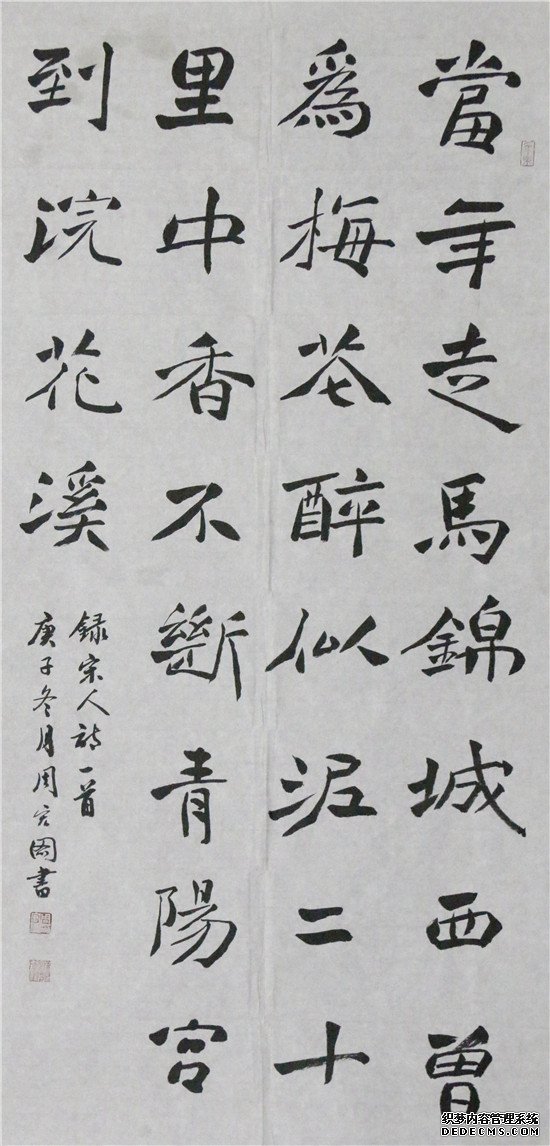 當年走馬錦城西曾
爲梅花醉似泥二十
里中香不斷青陽宮
到浣花溪
録宋人詩一首
庚子冬月周宏图書
织梦内容管理系统
DEDECMS.COM